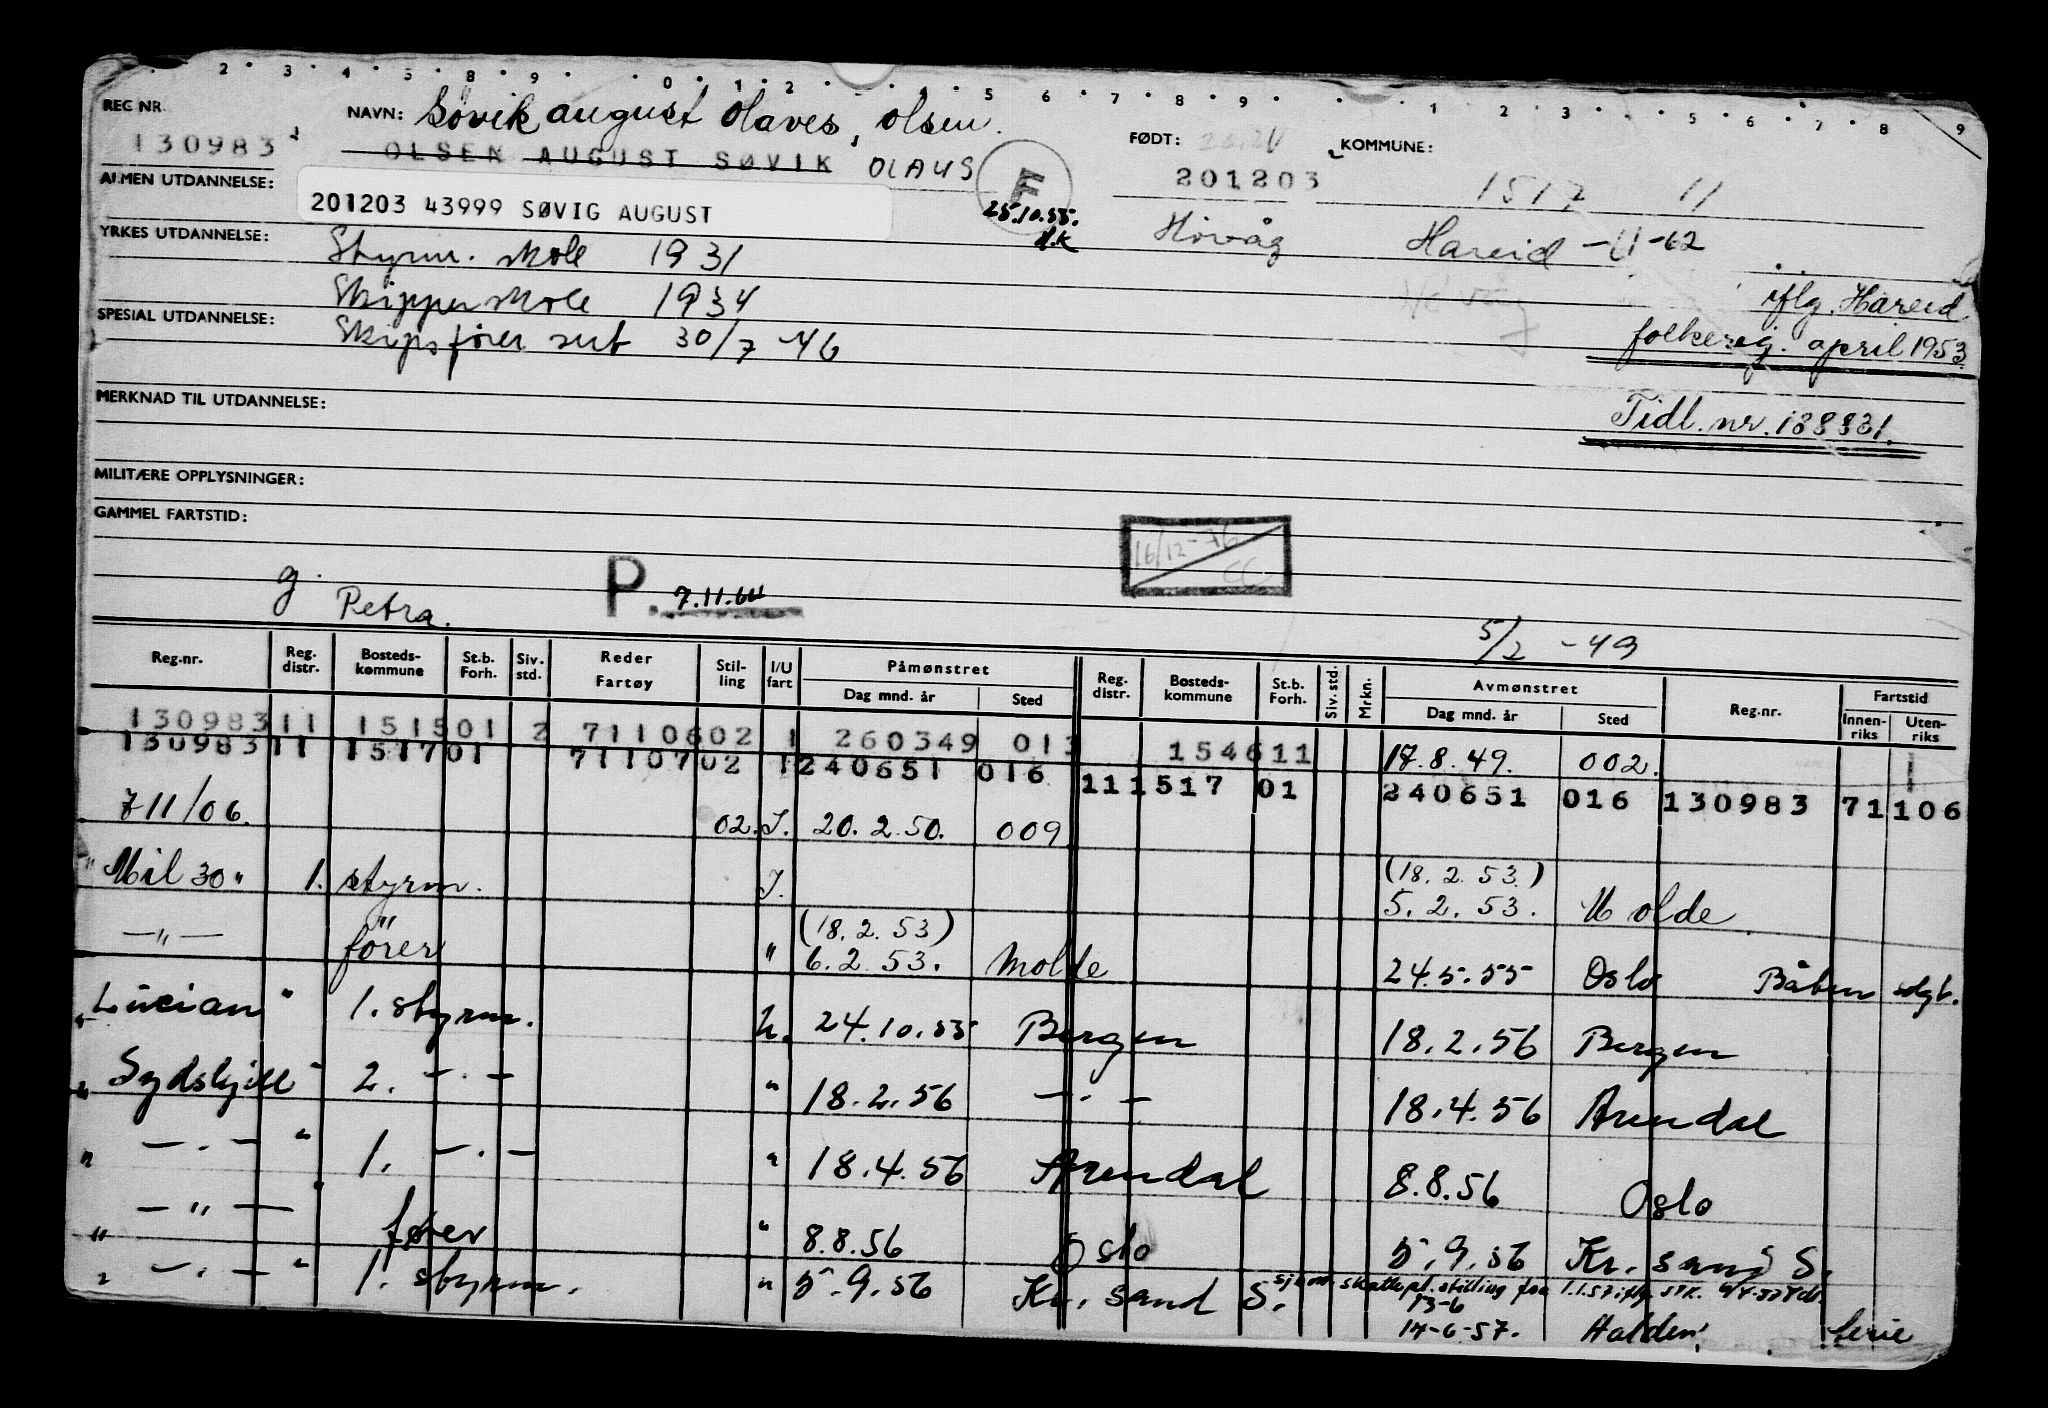 2 3 4 5 8 9 0 1 2 4 5 6 7 8 9 1 2 3 5 6 7 8 9
REG NR. 130983
NAVN: Søvik august Olaves, Olsen.
OLSEN AUGUST SØVIK OLAUS
F
25.10.55.
FØDT: 201203
KOMMUNE: 1517 11
ALMEN UTDANNELSE:
201203 43999 SØVIG AUGUST
Høvåg Hareid -11-62
YRKES UTDANNELSE: Styrm. skole 1931
Skipperskole 1934
iflg. Hareid
SPESIAL UTDANNELSE: Skipsfører sert 30/7 -46
folkereg. april 1953
MERKNAD TIL UTDANNELSE:
Tidl. nr. 138831.
MILITÆRE OPPLYSNINGER:
GAMMEL FARTSTID:
16/12-76
CC
g. Petra. P. 7.11.64
5/2 -49
Reg.nr. Reg. distr. Bosteds-kommune St.b. Forh. Siv. std. Reder Fartøy Stil-ling I/U fart Påmønstret Dag mnd. år Sted Reg. distr. Bosteds-kommune St.b. Forh. Siv. std. Mrkn. Avmønstret Dag mnd. år Sted Reg.nr. Fartstid Innen-riks Uten-riks
130983 11 1515 01 2 71106 02 1 260349 013 1546 11 17.8.49. 002.
130983 11 1517 01 71107 02 1 240651 016 11 1517 01 240651 016 130983 71 106
711/06. 02. I. 20.2.50. 009
" Mil 30 " 1. styrm. I. (18.2.53) 5.2.53. Molde.
—"— fører " (18.2.53) 6.2.53. Molde 24.5.55 Oslo Båten solgt.
" Lucian " 1. styrm. U. 24.10.55 Bergen 18.2.56 Bergen
" Sydskjell " 2. —.— " 18.2.56 —.— 18.4.56 Arendal
" —.— " 1. —.— " 18.4.56 Arendal 8.8.56 Oslo
" —"— " fører " 8.8.56 Oslo 5.9.56 Kr. sand S.
" —.— " 1. styrm. " 5.9.56 Kr. sand S. skattepl. stilling fra 1.1.57 iflg.
13-6
14-6-57. Halden, ferie